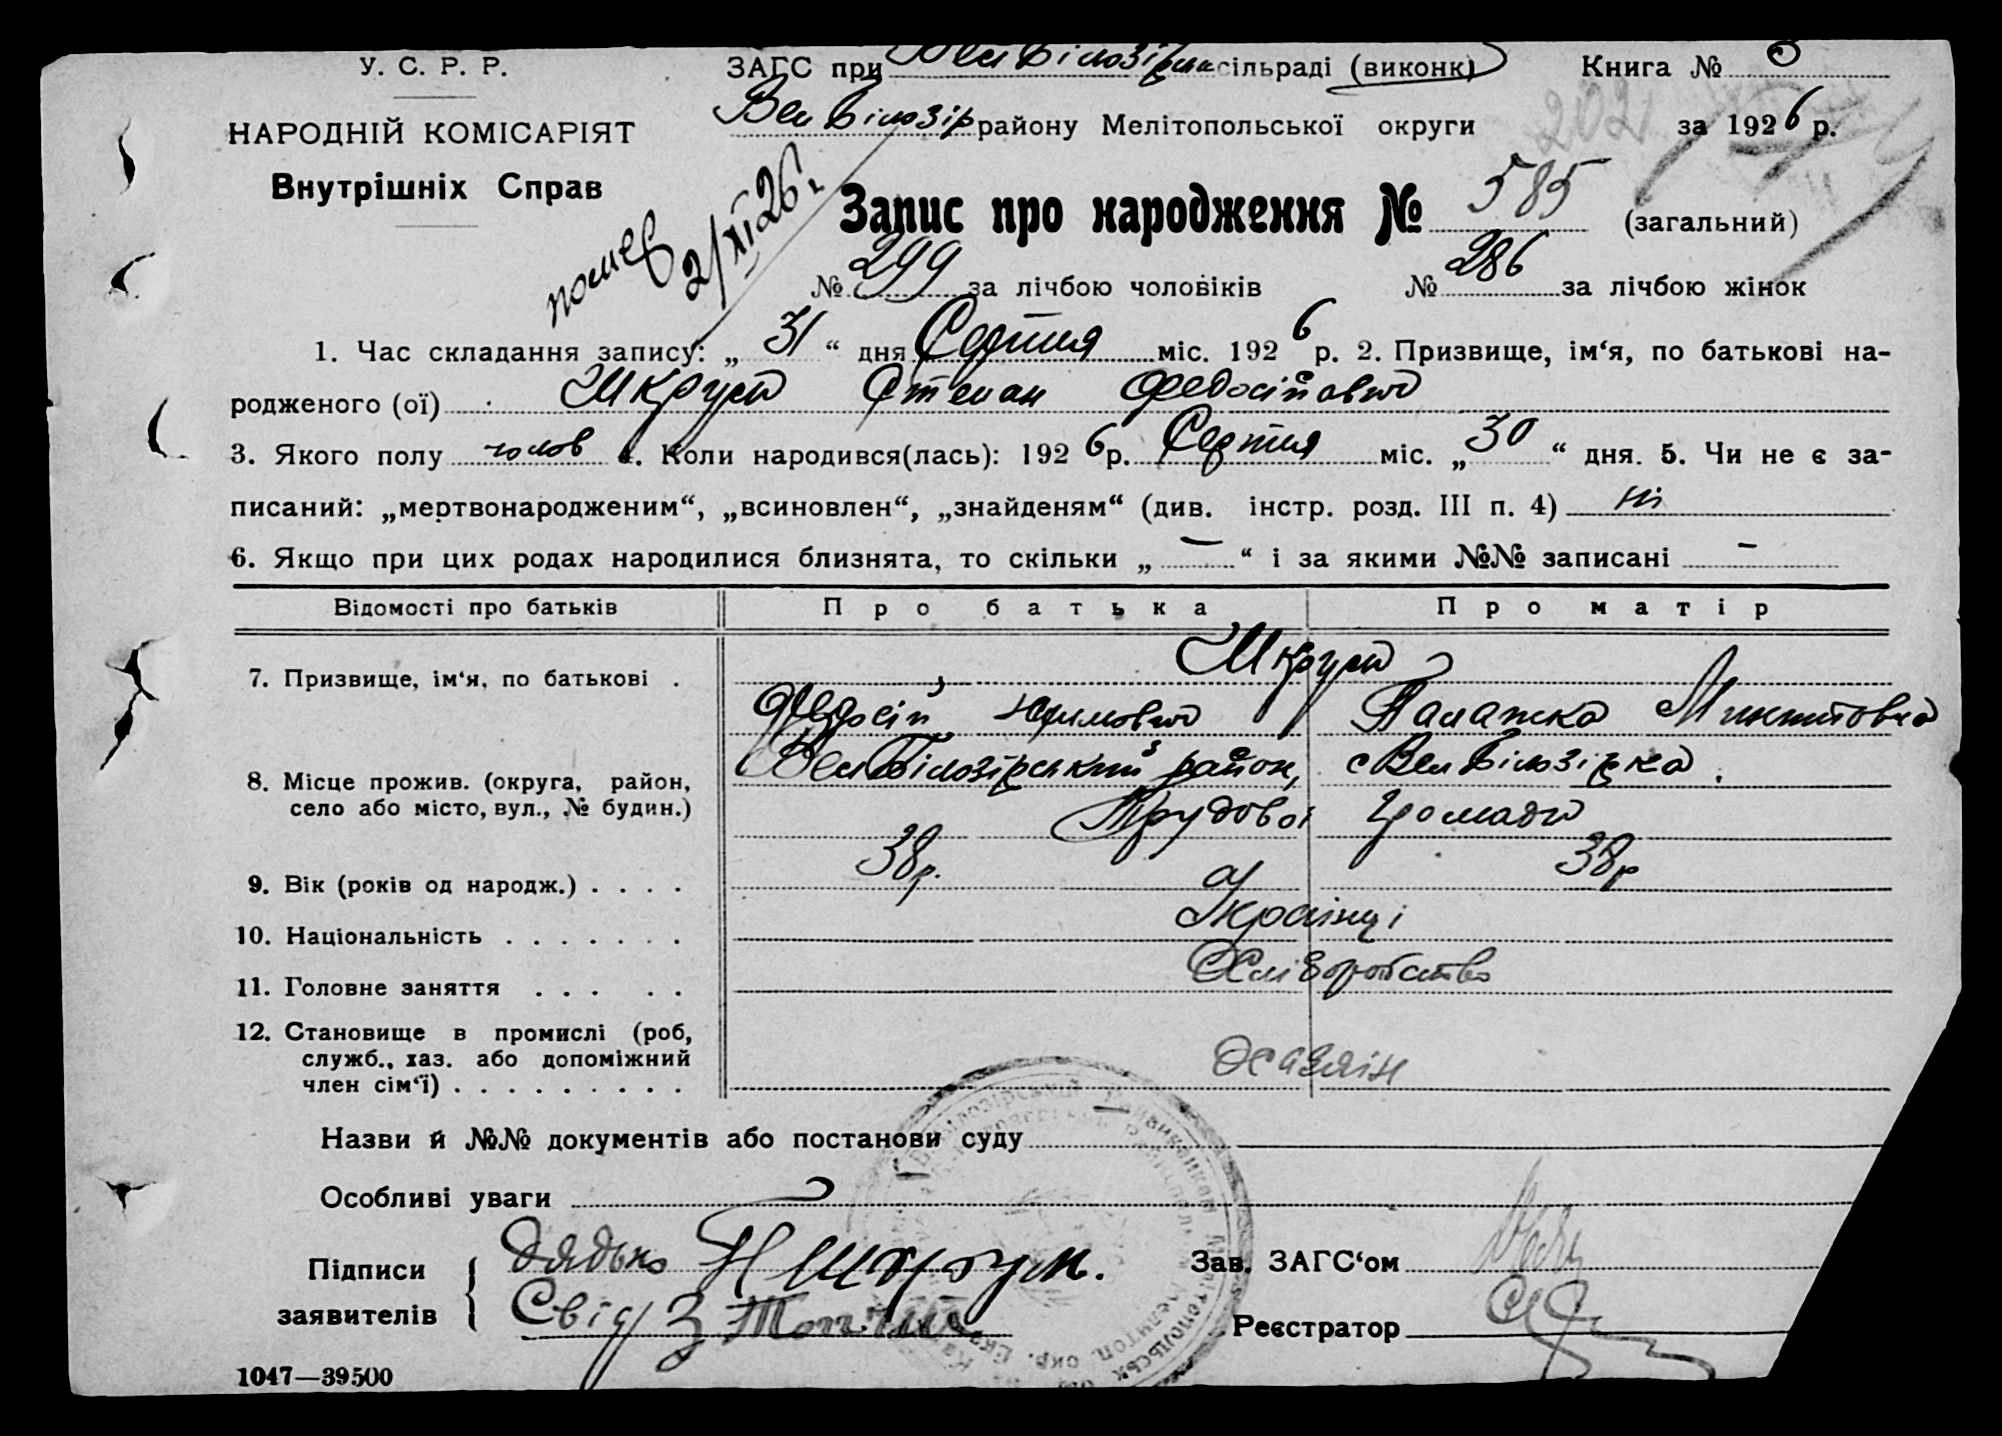 У. С. Р. Р.
НАРОДНІЙ КОМІСАРІЯТ
Внутрішніх Справ
ЗАГС при Вел Білозірськ сільраді (виконк)
Книга №
Вел Білозір району Мелітопольської округи
за 1926 р.
202
помер
2/XI 26 г.
Запис про народження № 585 (загальний)
№ 299 за лічбою чоловіків № 286 за лічбою жінок
1. Час складання запису: „ 31 “ дня Серпня міс. 1926 р. 2. Призвище, ім‘я, по батькові на-
родженого (ої) Шкрум Степан Федосійович
3. Якого полу чолов 4. Коли народився(лась): 1926 р. Серпня міс. „ 30 “ дня. 5. Чи не є за-
писаний: „мертвонародженим“, „всиновлен“, „знайденям“ (див. інстр. розд. III п. 4) ні
6. Якщо при цих родах народилися близнята, то скільки „ — “ і за якими №№ записані —
Відомості про батьків Про батька Про матір
7. Призвище, ім‘я, по батькові .
Шкрум
Федосій Палажка
8. Місце прожив. (округа, район,
село або місто, вул., № будин.)
Вел Білозірський район, с Вел Білозірка.
Трудової Громади
9. Вік (років од народж.) . . . . 38 р. 38 р
10. Національність . . . . . . . Українці
11. Головне заняття . . . . . Хліборобство
12. Становище в промислі (роб,
служб., хаз. або допоміжний
член сім‘ї) . . . . . . . . . Хазяїн
Назви й №№ документів або постанови суду
Особливі уваги
Підписи
заявителів
Дядько Н Шкрум.
Свід З Топчий
Зав. ЗАГС‘ом
Реєстратор
1047—39500